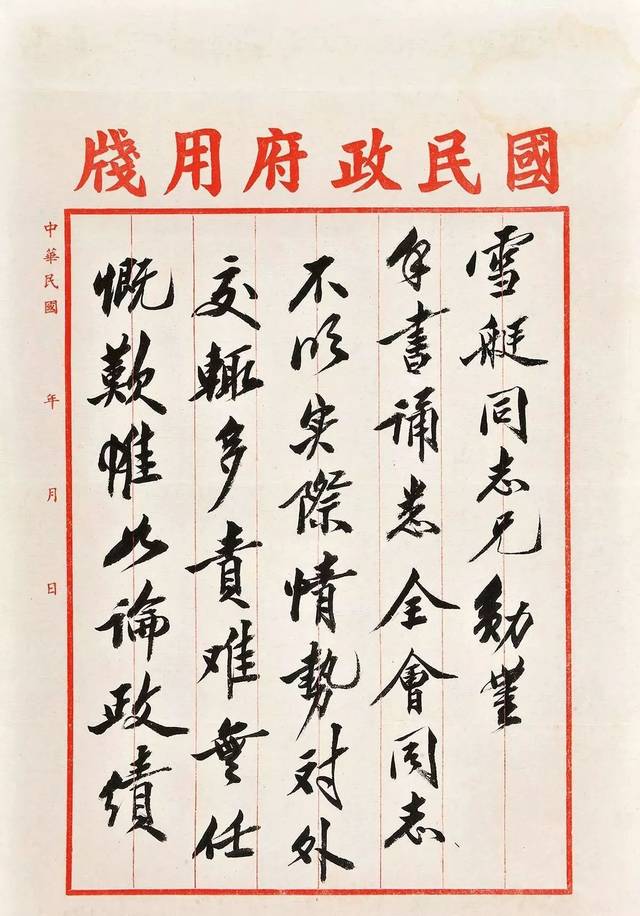 國民政府用牋
雪艇同志兄勛鑒
手書誦悉全會同志
不明实際情勢对外
交輒多責难無任
慨歎惟以論政績
中華民國 年 月 日